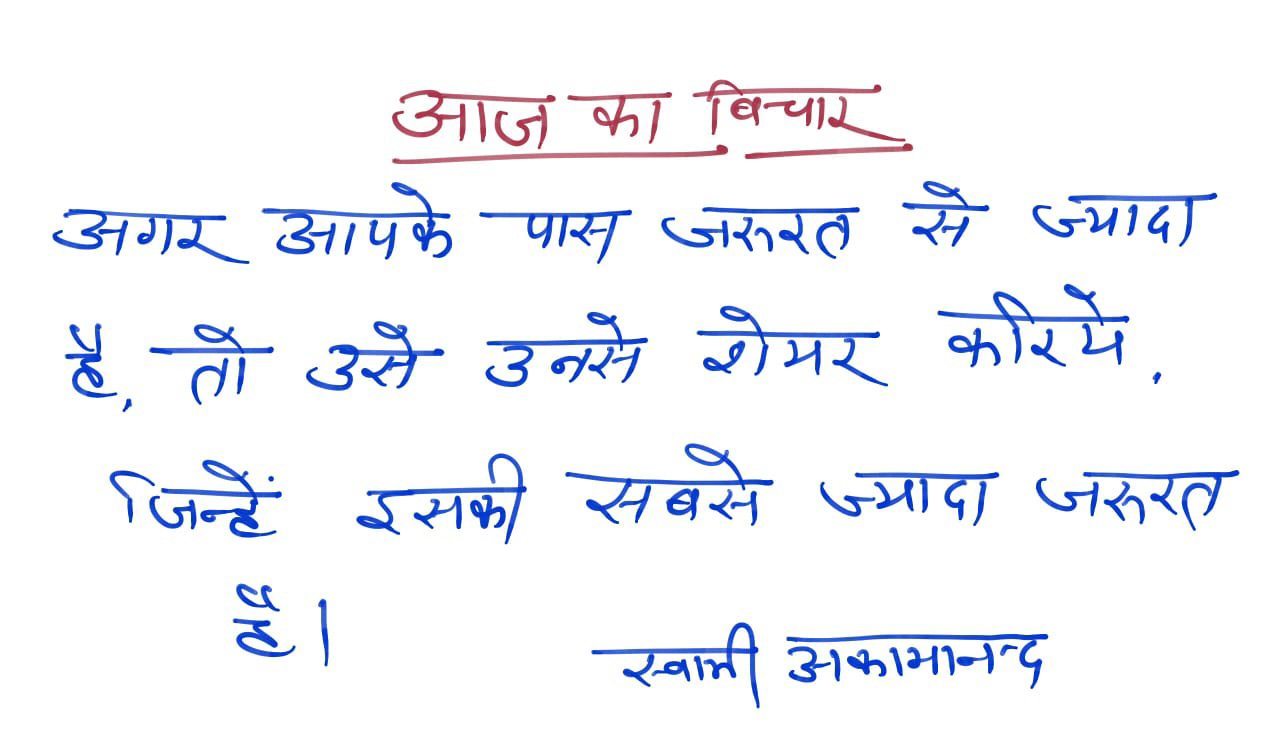 आज का बिचार
अगर आपके पास जरूरत से ज्यादा
है, तो उसे उनसे शेयर करिये,
जिन्हें इसकी सबसे ज्यादा जरूरत
है।
स्वामी अकामानन्द